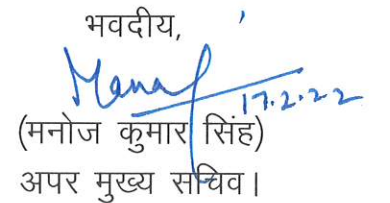 भवदीय,
17.2.22
(मनोज कुमार सिंह)
अपर मुख्य सचिव।